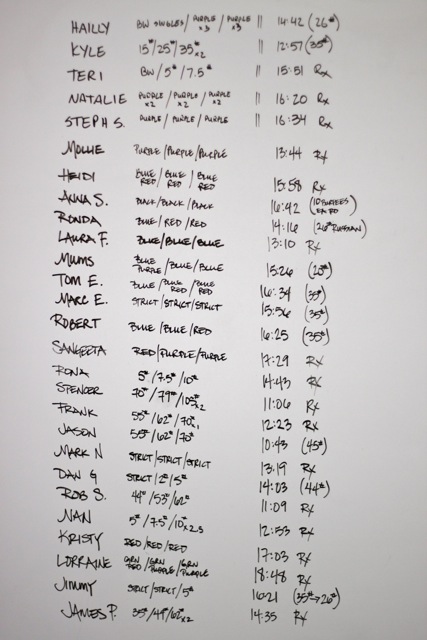 HAILLY BW SINGLES / PURPLE x3 / PURPLE x3 || 14:42 (26#)
KYLE 15# / 25# / 35# x2 || 12:57 (35#)
TERI BW / 5# / 7.5# || 15:51 Rx
NATALIE PURPLE x2 / PURPLE x2 / PURPLE x2 || 16:20 Rx
STEPH S. PURPLE / PURPLE / PURPLE || 16:34 Rx
MOLLIE PURPLE / PURPLE / PURPLE 13:44 Rx
HEIDI BLUE RED / BLUE RED / BLUE RED 15:58 Rx
ANNA S. BLACK / BLACK / BLACK 16:42 (10 BURPEES EA RD)
RONDA BLUE / RED / RED 14:16 (26# RUSSIAN)
LAURA F. BLUE / BLUE / BLUE 13:10 Rx
MUMS BLUE PURPLE / BLUE / BLUE 15:26 (20#)
TOM E. BLUE / BLUE RED / BLUE RED 16:34 (35#)
MARC E. STRICT / STRICT / STRICT 15:56 (35#)
ROBERT BLUE / BLUE / RED 16:25 (35#)
SANGEETA RED / PURPLE / PURPLE 17:29 Rx
FONA 5# / 7.5# / 10# 14:43 Rx
SPENCER 70# / 79# / 105# x2 11:06 Rx
FRANK 55# / 62# / 70# x1 12:23 Rx
JASON 55# / 62# / 70# 10:43 (45#)
MARK N STRICT / STRICT / STRICT 13:19 Rx
DAN G STRICT / 2# / 5# 14:03 (44#)
ROB S. 44# / 53# / 62# 11:09 Rx
NAN 5# / 7.5# / 10# x2.5 12:53 Rx
KRISTY RED / RED / RED 17:03 Rx
LORRAINE GRN RED / GRN PURPLE / GRN PURPLE 18:48 Rx
JIMMY STRICT / STRICT / 5# 16:21 (35# → 26#)
JAMES P. 35# / 44# / 62# x2 14:35 Rx